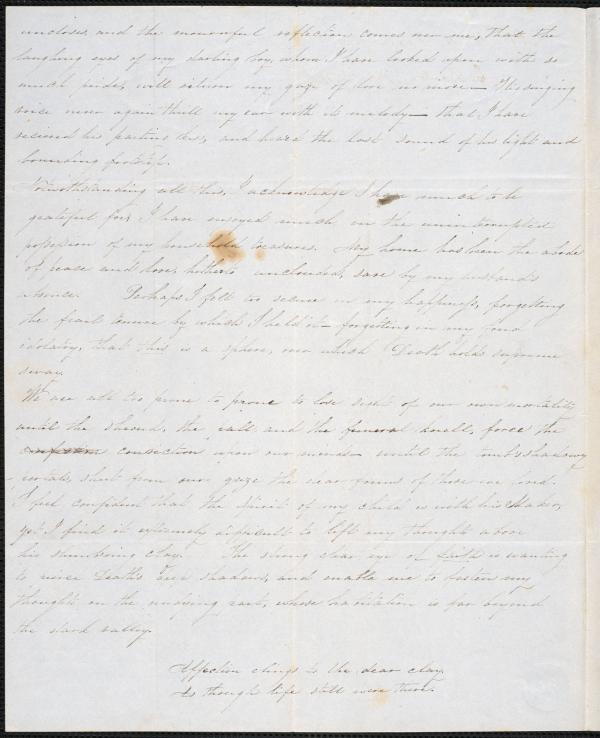 uncloses and the mournful reflection comes over me, that the
laughing eyes of my darling boy, whom I have looked upon with so
much pride, will return my gaze of love no more — His singing
voice never again thrill my ear with its melody — that I have
received his parting kiss, and heard the last sound of his light and
bounding footstep.
Notwithstanding all this, I acknowledge I have much to be
grateful for, I have enjoyed much in the uninterrupted
possession of my household treasures. My home has been the abode
of peace and love, hitherto unclouded, save by my husband's
absence. Perhaps I felt too secure in my happiness, forgetting
the frail tenure by which I held it — forgetting in my fond
idolatry, that this is a sphere, over which Death holds supreme
sway.
We are all too prone to lose sight of our own mortality
until the shroud, the pall and the funeral knell, force the
conviction upon our minds — until the tomb's shadowy
portals, shut from our gaze the dear forms of those we loved.
I feel confident that the spirit of my child is with his Maker,
yet I find it extremely difficult to lift my thoughts above
his slumbering clay. The strong clear eye of faith is wanting
to pierce Death's deep shadows, and enable me to fasten my
thoughts on the undying part, whose habitation is far beyond
the dark valley.
Affection clings to the dear clay
As though life still were there.